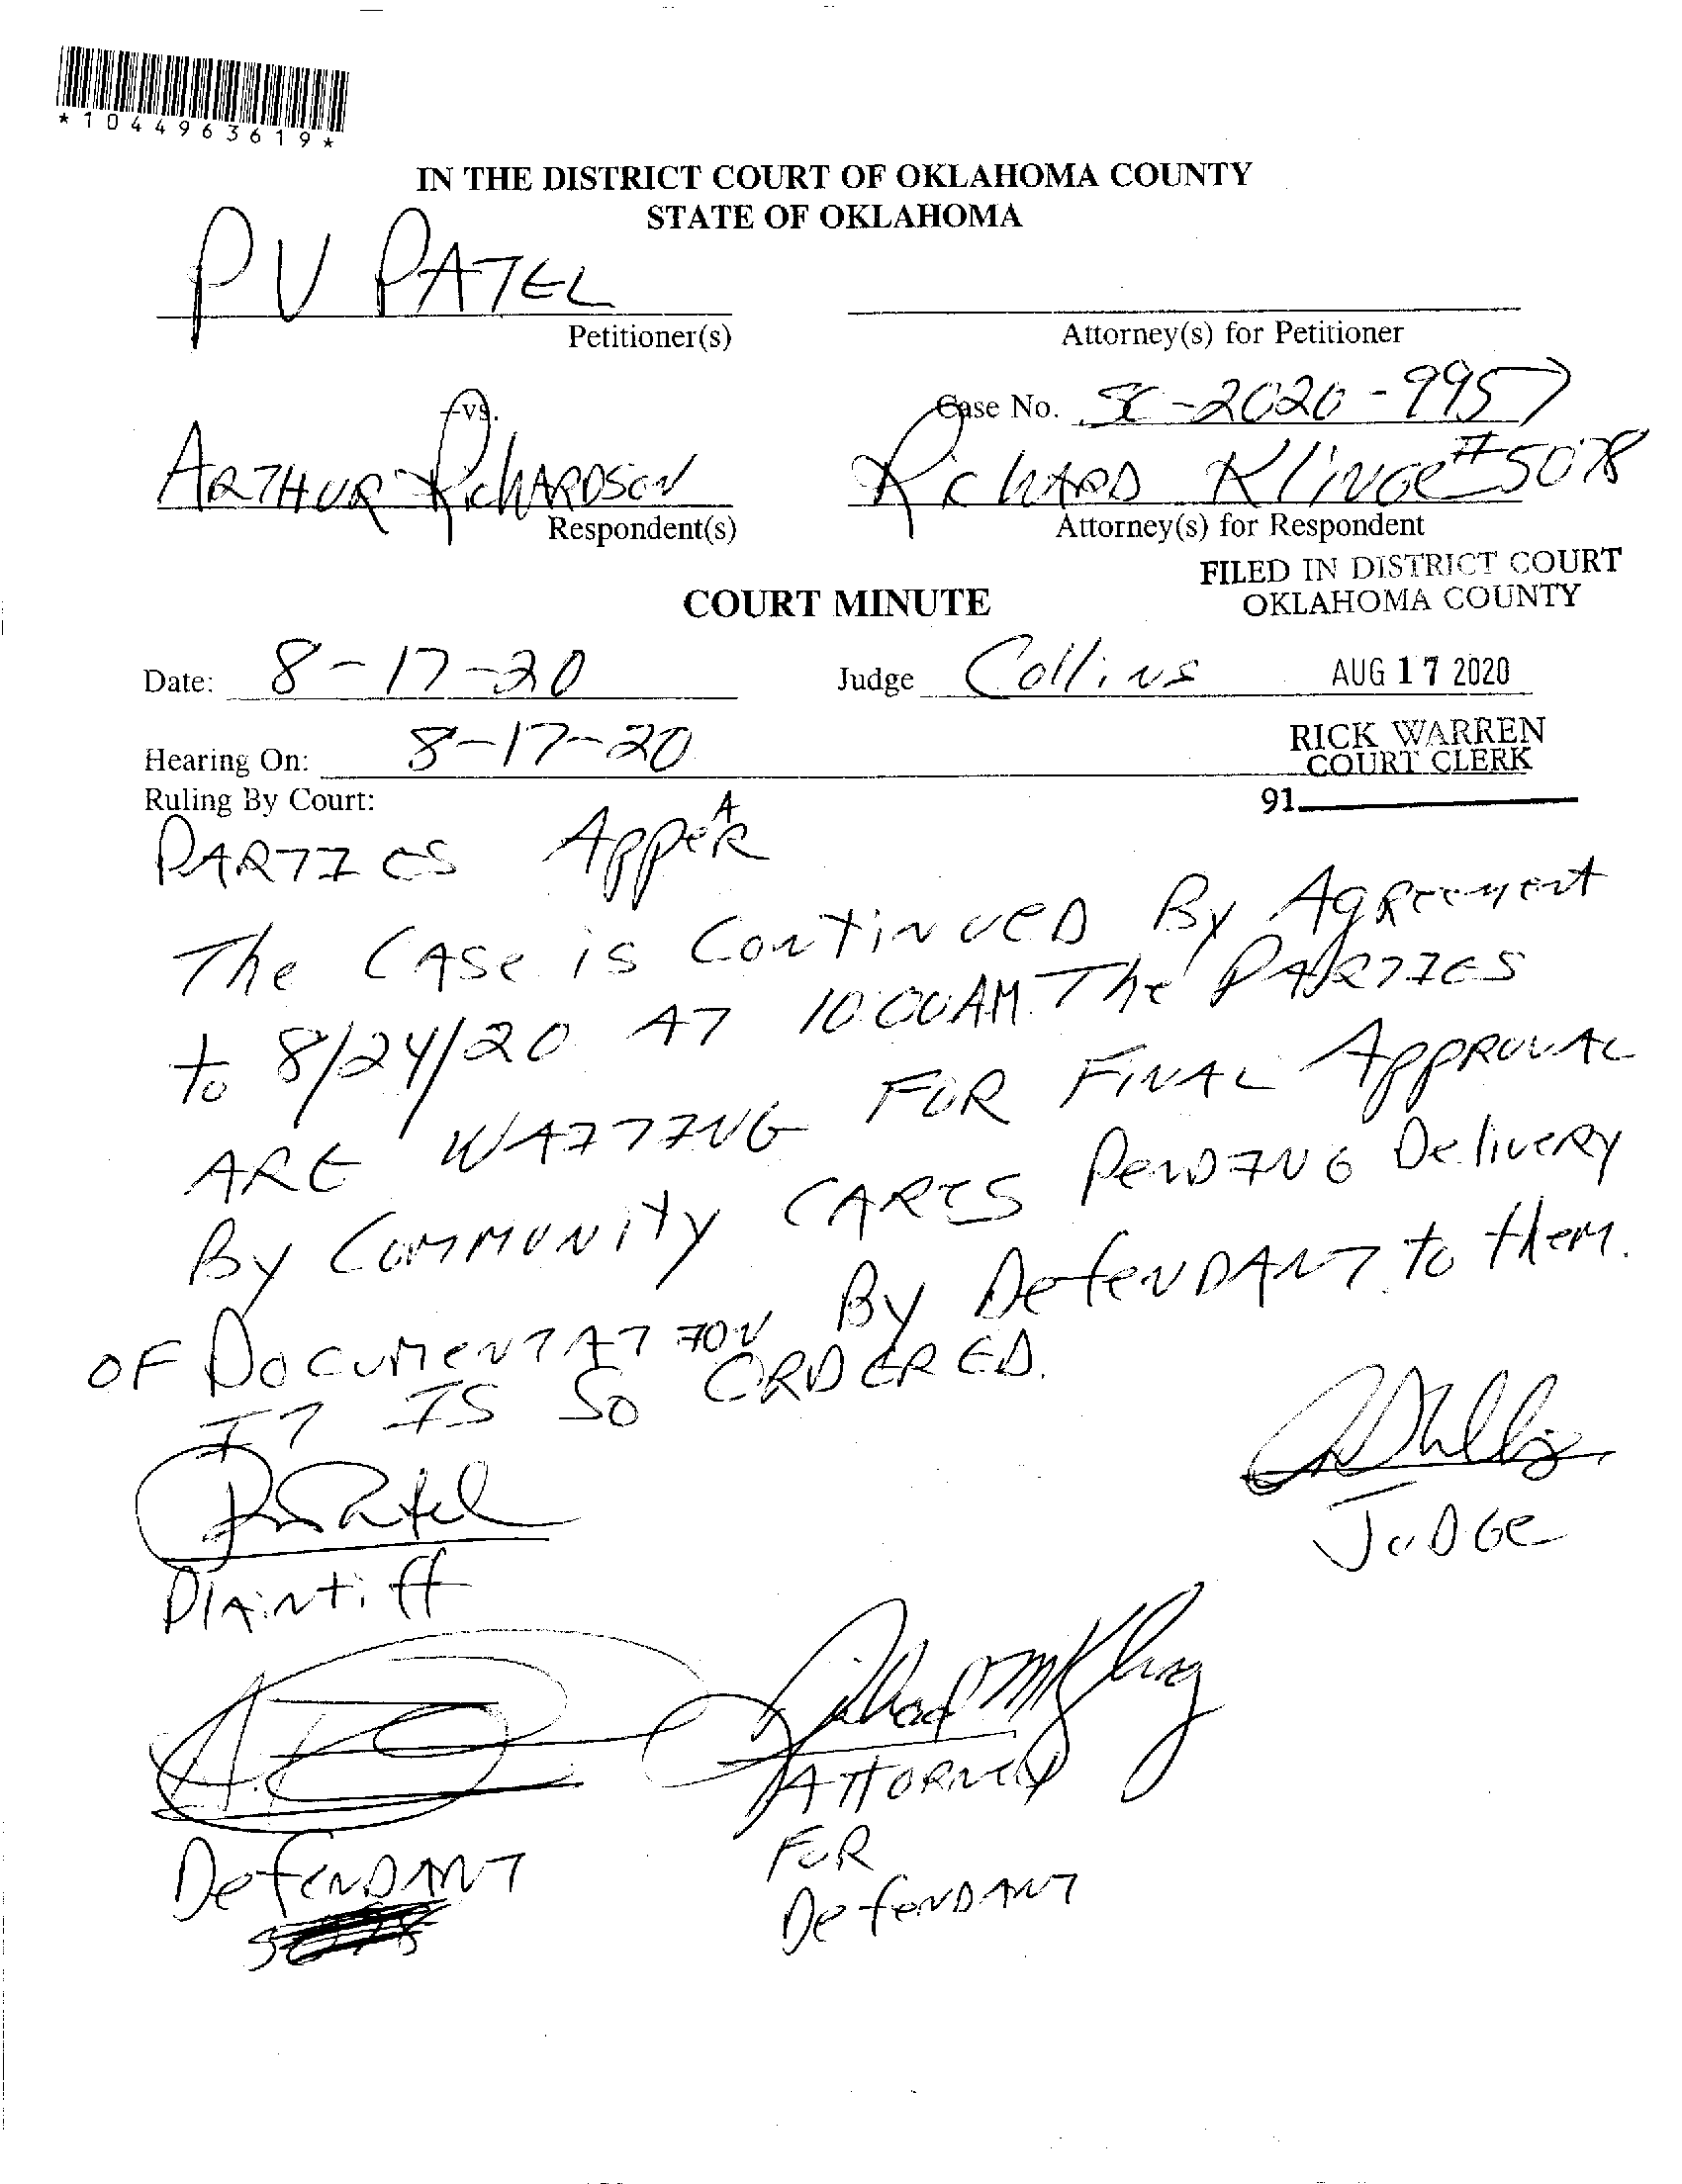 *1044963619*
IN THE DISTRICT COURT OF OKLAHOMA COUNTY
STATE OF OKLAHOMA
PV PATEL
Petitioner(s)
Attorney(s) for Petitioner
-vs.
Case No. SC-2020-9957
ARTHUR RICHARDSON
Respondent(s)
RICHARD KLINGE #5078
Attorney(s) for Respondent
FILED IN DISTRICT COURT
OKLAHOMA COUNTY
COURT MINUTE
Date: 8-17-20
Judge Collins
AUG 17 2020
Hearing On: 8-17-20
RICK WARREN
COURT CLERK
Ruling By Court:
91
PARTIES AppeAR
The CASe is ContinueD By AgReement
to 8/24/20 AT 10:00AM The PARTIES
ARE WAITING FOR FINAL APPROVAL
By COMMUNITY CARES PeNDING DelivERy
OF DOCUMENTATION By DefeNDANT to them.
IT IS SO ORDERED.
PV Patel
Plaintiff
JuDGe
DefeNDANT
5078
ATTORNey
FOR
DefeNDANT